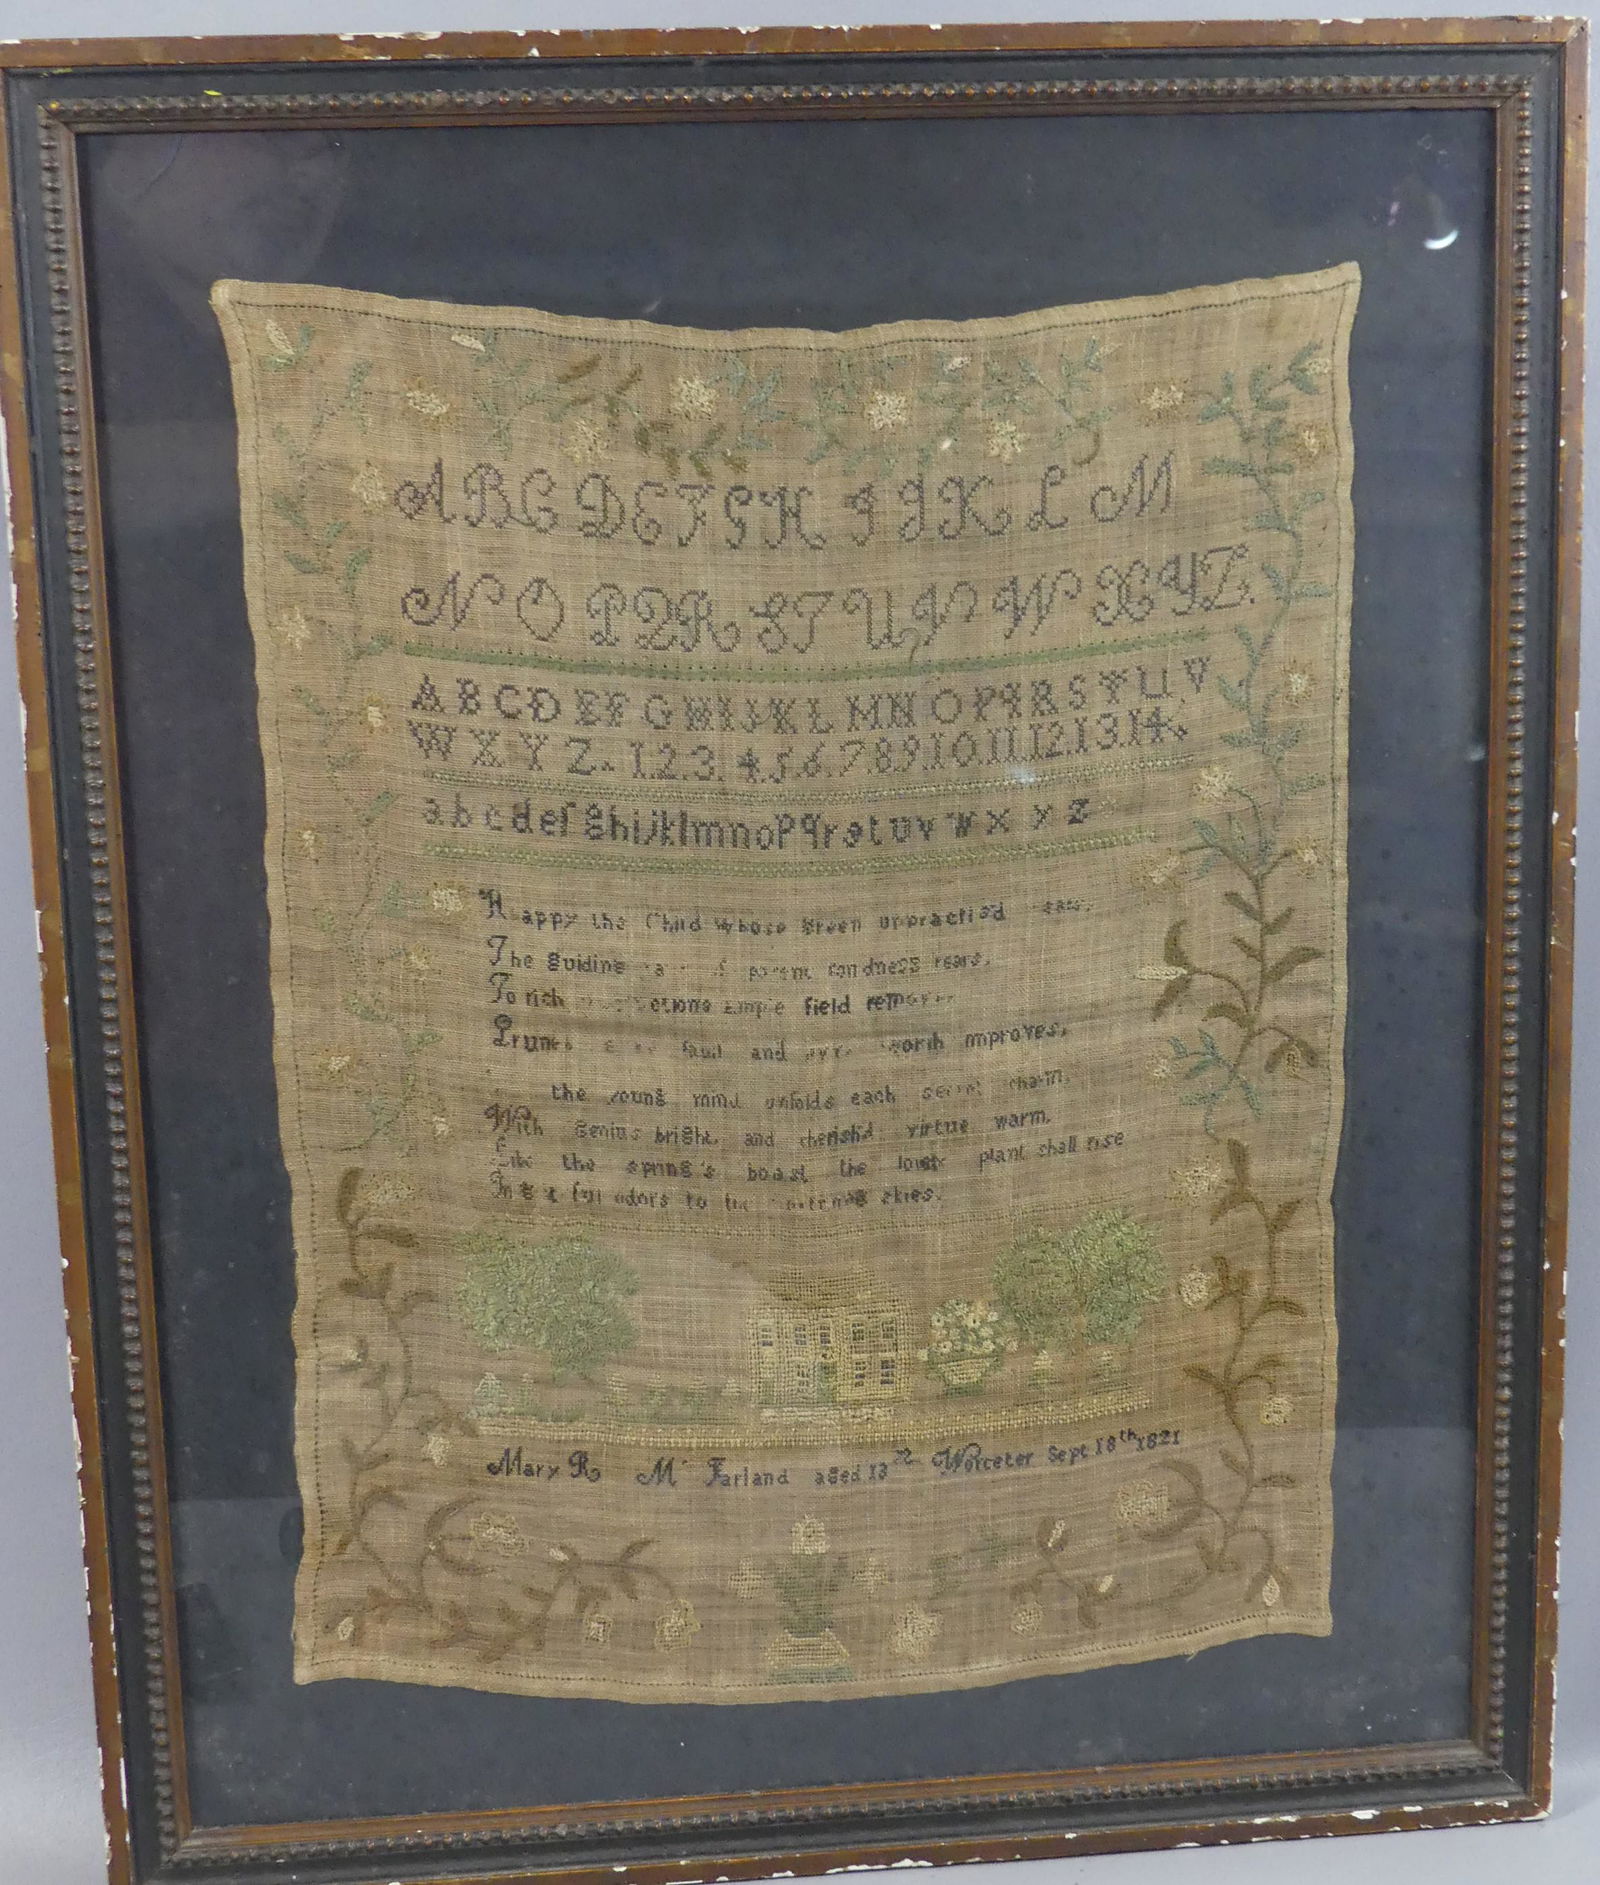 A B C D E F G H I J K L M
N O P Q R S T U V W X Y Z.
A B C D E F G H I J K L M N O P Q R S T U V
W X Y Z. 1.2.3.4.5.6.7.8.9.10.11.12.13.14.
a b c d e f g h i j k l m n o p q r s t u v w x y z
Happy the Child whose green unpractis'd
The guiding of parent fondness rears,
To rich ample field
and worth improves,
the young mind unfolds each secret charm,
With genius bright, and cherish'd virtue warm,
Like the spring's boast the plant shall rise
odors to skies.
Mary R Mc Farland aged 13 Worcester Sept 18th 1821